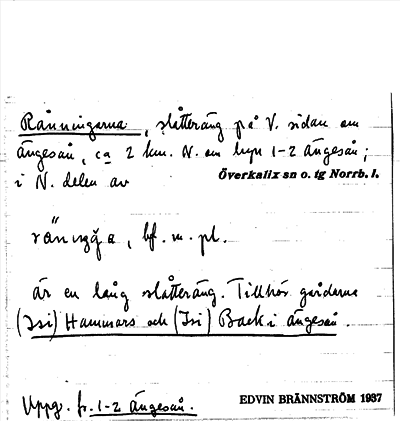 Rånningarna, slåtteräng på V. sidan om
ängesån, ca 2 km. N. om byn 1-2 Ängesån;
i N. delen av
Överkalix sn o. tg Norrb. l.
bf. m. pl.
är en lång slåtteräng. Tillhör gårdarna
(Isi) Hammars och (Isi) Back i ängesån.
Uppg. fr. 1-2 ängesån.
EDVIN BRÄNNSTRÖM 1937